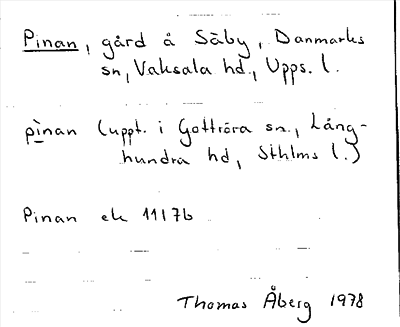 Pinan, gård å Säby, Danmarks
sn, Vaksala hd., Upps. l.
pìnan (uppt. i Gottröra sn., Lång-
hundra hd, Sthlms l.)
Pinan ek 11I7b
Thomas Åberg 1978